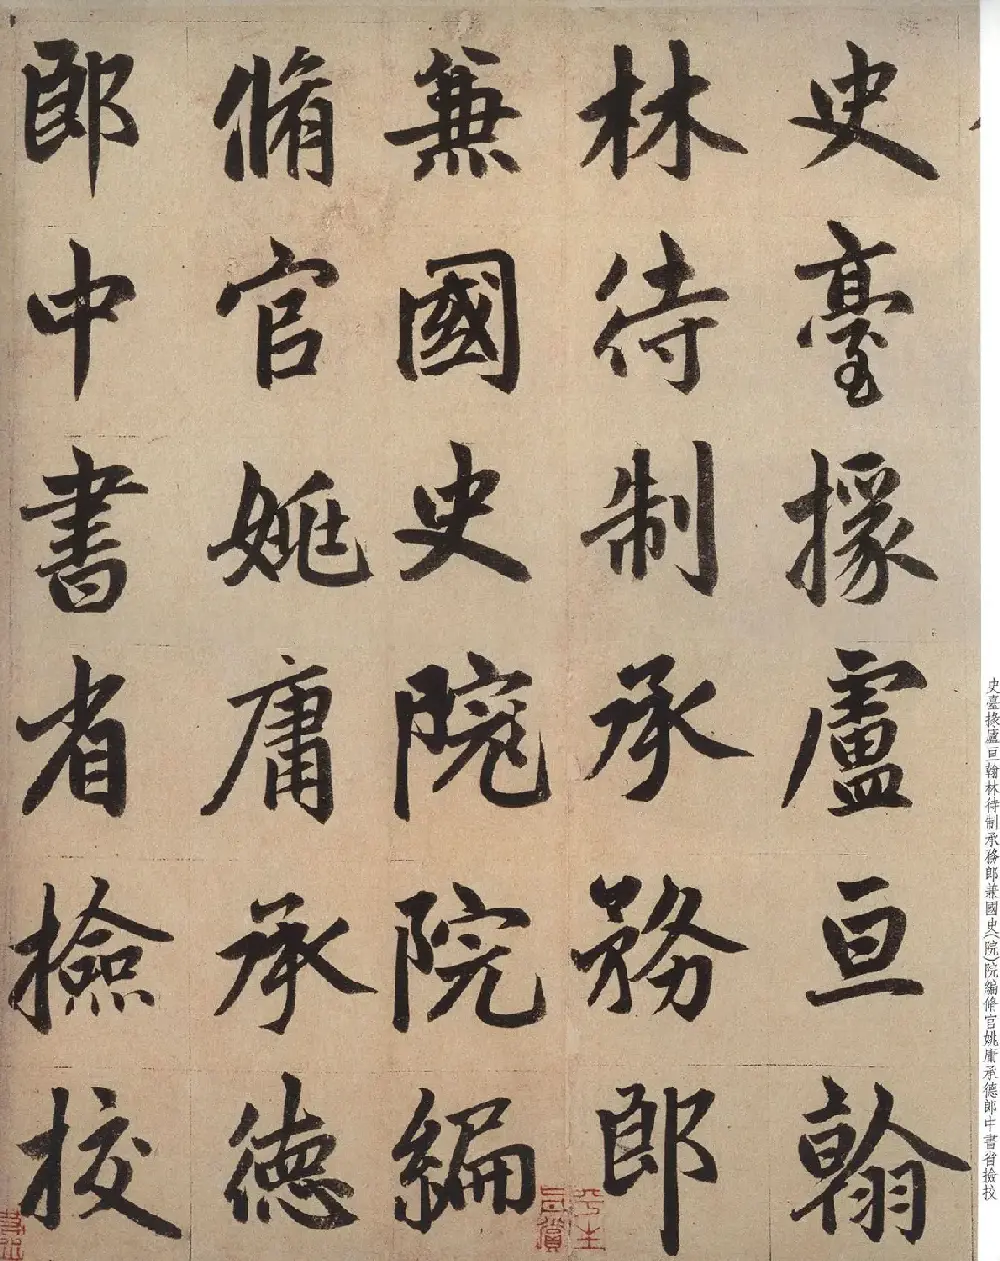 史臺掾盧亘翰
林待制承務郎
兼國史院院編
脩官姚庸承德
郎中書省檢挍
史臺掾盧亘翰林待制承務郎兼國史(院)院編脩官姚庸承德郎中書省撿挍